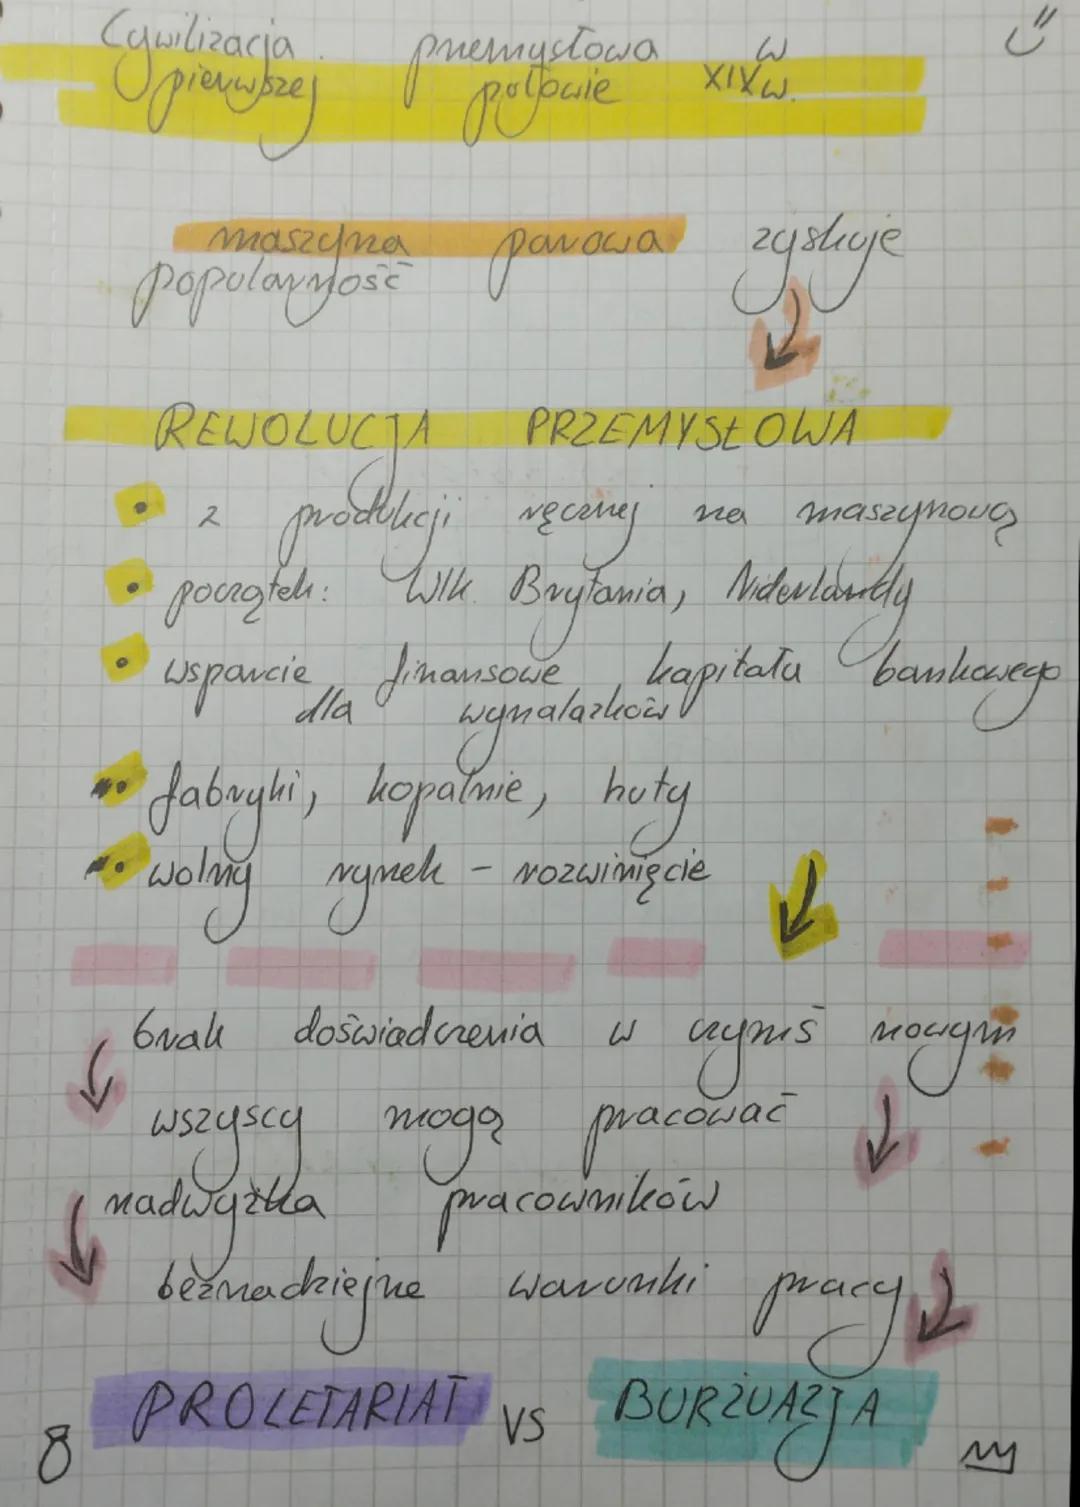 Cywilizacja przemysłowa w
pierwszej połowie XIX w.
maszyna parowa zyskuje
popularność
REWOLUCJA PRZEMYSŁOWA
• z produkcji ręcznej na maszynową
• początek: Wlk. Brytania, Niderlandy
• wsparcie finansowe kapitału bankowego
dla wynalazków
• fabryki, kopalnie, huty
• wolny rynek - rozwinięcie
brak doświadczenia w czymś nowym
wszyscy mogą pracować
nadwyżka pracowników
beznadziejne warunki pracy
PROLETARIAT VS BURŻUAZJA
8